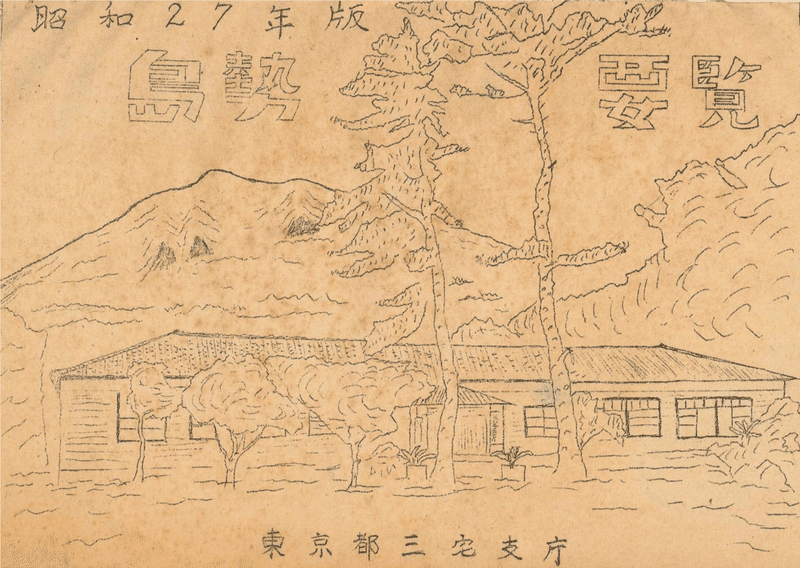 昭和27年版
島勢要覧
東京都三宅支庁